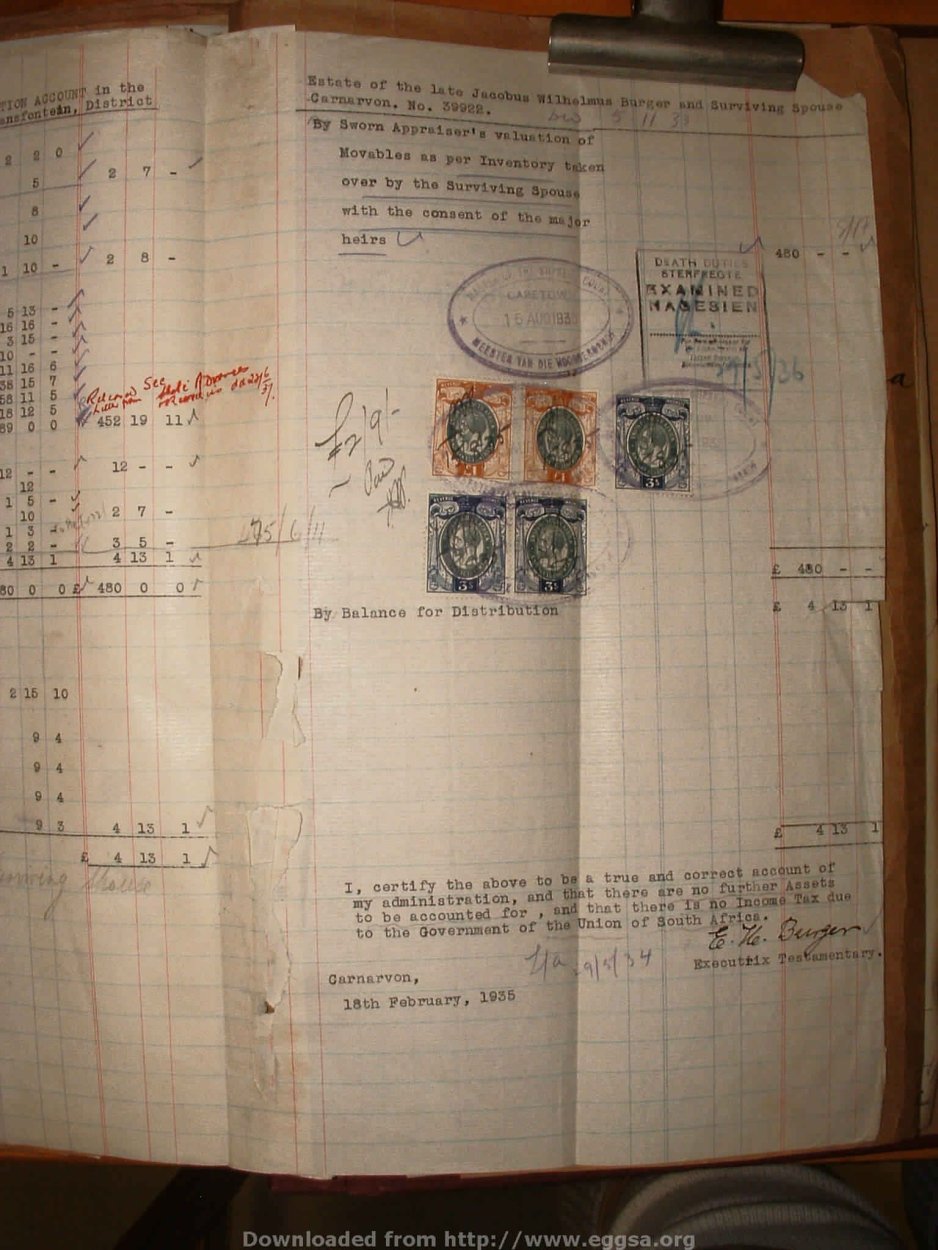 TION ACCOUNT in the
ansfontein, District
2 2 0
5
2 7 -
8
10
1 10 -
2 8 -
5 13 -
16 16 -
3 15 -
10 - -
11 16 6
38 15 7
58 11 5
18 12 5
39 0 0
See
452 19 11
12 - -
12 - -
12
1 5 -
10
2 7 -
1 3 -
2 2 -
3 5 -
4 13 1
4 13 1
80 0 0
£ 480 0 0
2 15 10
9 4
9 4
9 4
9 3
4 13 1
£ 4 13 1
Spouse
Estate of the late Jacobus Wilhelmus Burger and Surviving Spouse
Carnarvon. No. 39922.
5 11 33
By Sworn Appraiser's valuation of
Movables as per Inventory taken
over by the Surviving Spouse
with the consent of the major
heirs
480 - -
DEATH DUTIES
STERFREGTE
EXAMINED
NAGESIEN
29/5/36
CAPETOWN
15 AUG 193
MEESTER VAN DIE HOOGGEREGSHOF
£2/9/-
£1
£1
3s
3s
3s
£ 480 - -
By Balance for Distribution
£ 4 13 1
£ 4 13 1
I, certify the above to be a true and correct account of
my administration, and that there are no further Assets
to be accounted for , and that there is no Income Tax due
to the Government of the Union of South Africa.
E. H. Burger
Executrix Testamentary.
Carnarvon,
18th February, 1935
Downloaded from http://www.eggsa.org